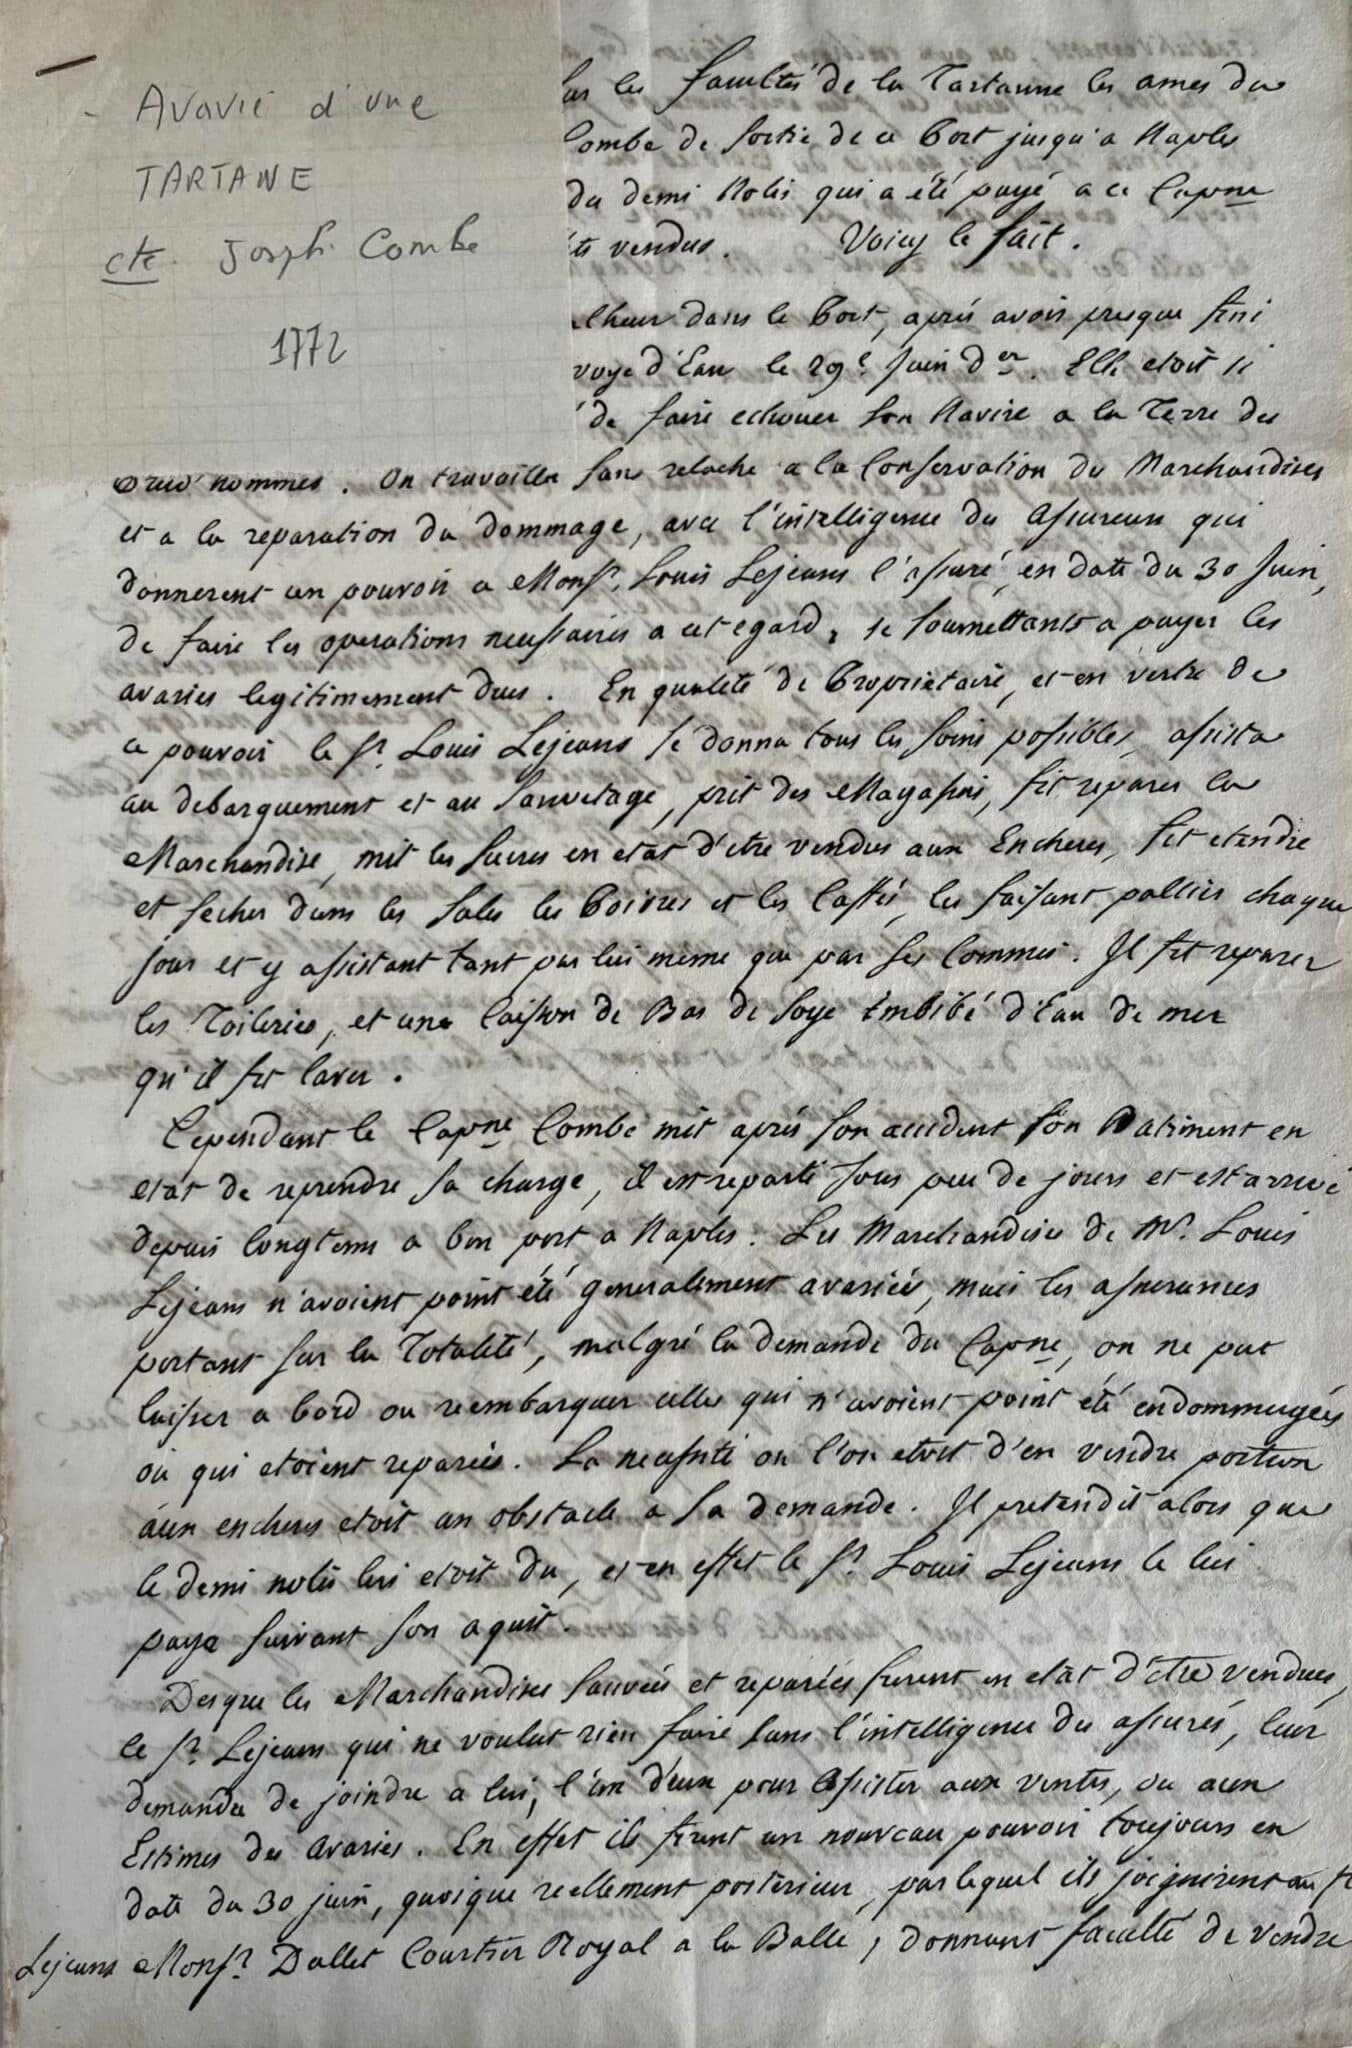 Avarie d'une
TARTANE
cte Joseph Combe
1772
sur les facultés de la Tartanne les ames du
Combe de sortie de ce Port jusqu'a Naples
du demi Nolis qui a été payé a ce Capne
vendus. Voicy le fait.
dans le Port, aprés avoir presque fini
voye d'Eau le 29e Juin der. Elle etoit si
de faire echouer son Navire a la Terre des
nommes. On travailla sans relache a la Conservation du Marchandises
et a la reparation du dommage, avec l'intelligence des Assureurs qui
donnerent un pouvoir a Monsr. Louis Lejeans l'assuré, en date du 30 Juin,
de faire les operations necessaires a cet egard, se soumettants a payer les
avaries legitimement dues. En qualité de Proprietaire, et en vertu de
ce pouvoir le Sr. Louis Lejeans se donna tous les soins possibles, assista
au debarquement et au sauvetage, prit des Magasins, fit reparer la
Marchandise, mit les sucres en etat d'etre vendus aux Encheres, fit etendre
et secher dans les sales les Poivres et les Caffés, les faisant pallier chaque
jour et y assistant tant par lui meme que par ses Commis. Il fit reparer
les Toileries, et une Caisson de Bas de soye Embibé d'Eau de mer
qu'il fit laver.
Cependant le Capne Combe mit aprés son accident son Batiment en
etat de reprendre sa charge, il est reparti sous peu de jours et est arrivé
depuis longtems a bon port a Naples. Les Marchandises de Mr. Louis
Lejeans n'avoient point été generalement avariées, mais les assurances
portant sur la Totalité, malgré la demande du Capne, on ne put
laisser a bord ou reembarquer celles qui n'avoient point été endommagées
ou qui etoient reparées. La necessité ou l'on etoit d'en vendre portion
aux encheres etoit un obstacle a sa demande. Il pretendit alors que
le demi nolis lui etoit du, et en effet le Sr. Louis Lejeans le lui
paya suivant son aquit.
Desque les Marchandises sauvées et reparées furent en etat d'etre vendues,
le Sr. Lejeans qui ne voulut rien faire sans l'intelligence des assurés, leur
demanda de joindre a lui, l'un d'eux pour assister aux ventes, ou aux
Estimes des avaries. En effet ils firent un nouveau pouvoir toujours en
date du 30 juin, quoique reellement posterieur, par lequel ils joignirent au Sr
Lejeans Monsr. Dallet Courtier Royal a la Balle, donnant faculté de vendre